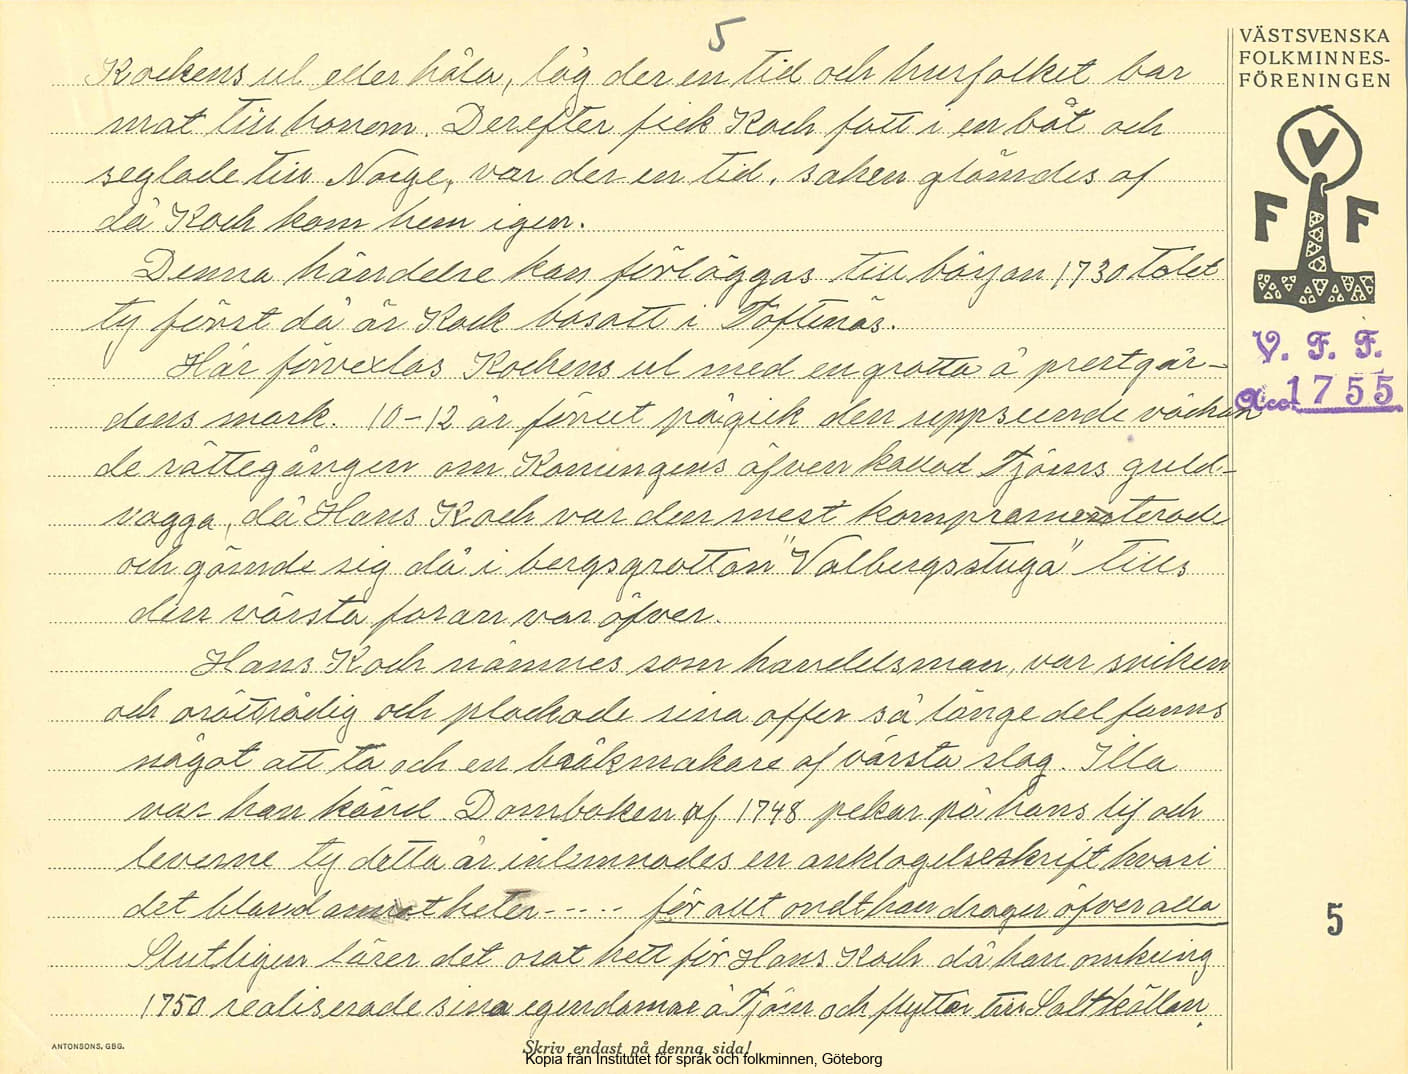 5
Kockens ul eller håla, låg der en tid och husfolket bar
mat till honom. Derefter fick Koch fatt i en båt och
seglade till Norge, var der en tid. saken glömdes af
då Koch kom hem igen.
Denna händelse kan förläggas till början 1730 talet
ty först då är Kock bosatt i Toftenäs.
Här förvexlas Kockens ul med en grotta å prestgår-
dens mark. 10-12 år förrut pågick den uppseende väcken
de rättegången om Konungens äfven kallad Tjörns guld-
vagga, då Hans Koch var den mest komprometerade
och gömde sig då i bergsgrottan "Valbergsstuga" tills
den värsta faran var öfver.
Hans Koch nämnes som handelsman, var sniken
och orättrådig och plockade sina offer så länge det fanns
något att ta och en bråkmakare af värsta slag. Illa
var han känd. Domboken af 1748 pekar på hans lif och
leverne ty detta år inlemnades en anklagelseskrift hvari
det bland annat heter----- för allt ondt han drager öfver alla
Slutligen lärer det osat hett för Hans Koch då han omkring
1750 realiserade sina egendomar å Tjörn och flyttar till Saltkällan.
VÄSTSVENSKA
FOLKMINNES-
FÖRENINGEN
V
F F
V. F. F.
Acc. 1755
5
ANTONSONS, GBG.
Skriv endast på denna sida!
Kopia från Institutet för språk och folkminnen, Göteborg